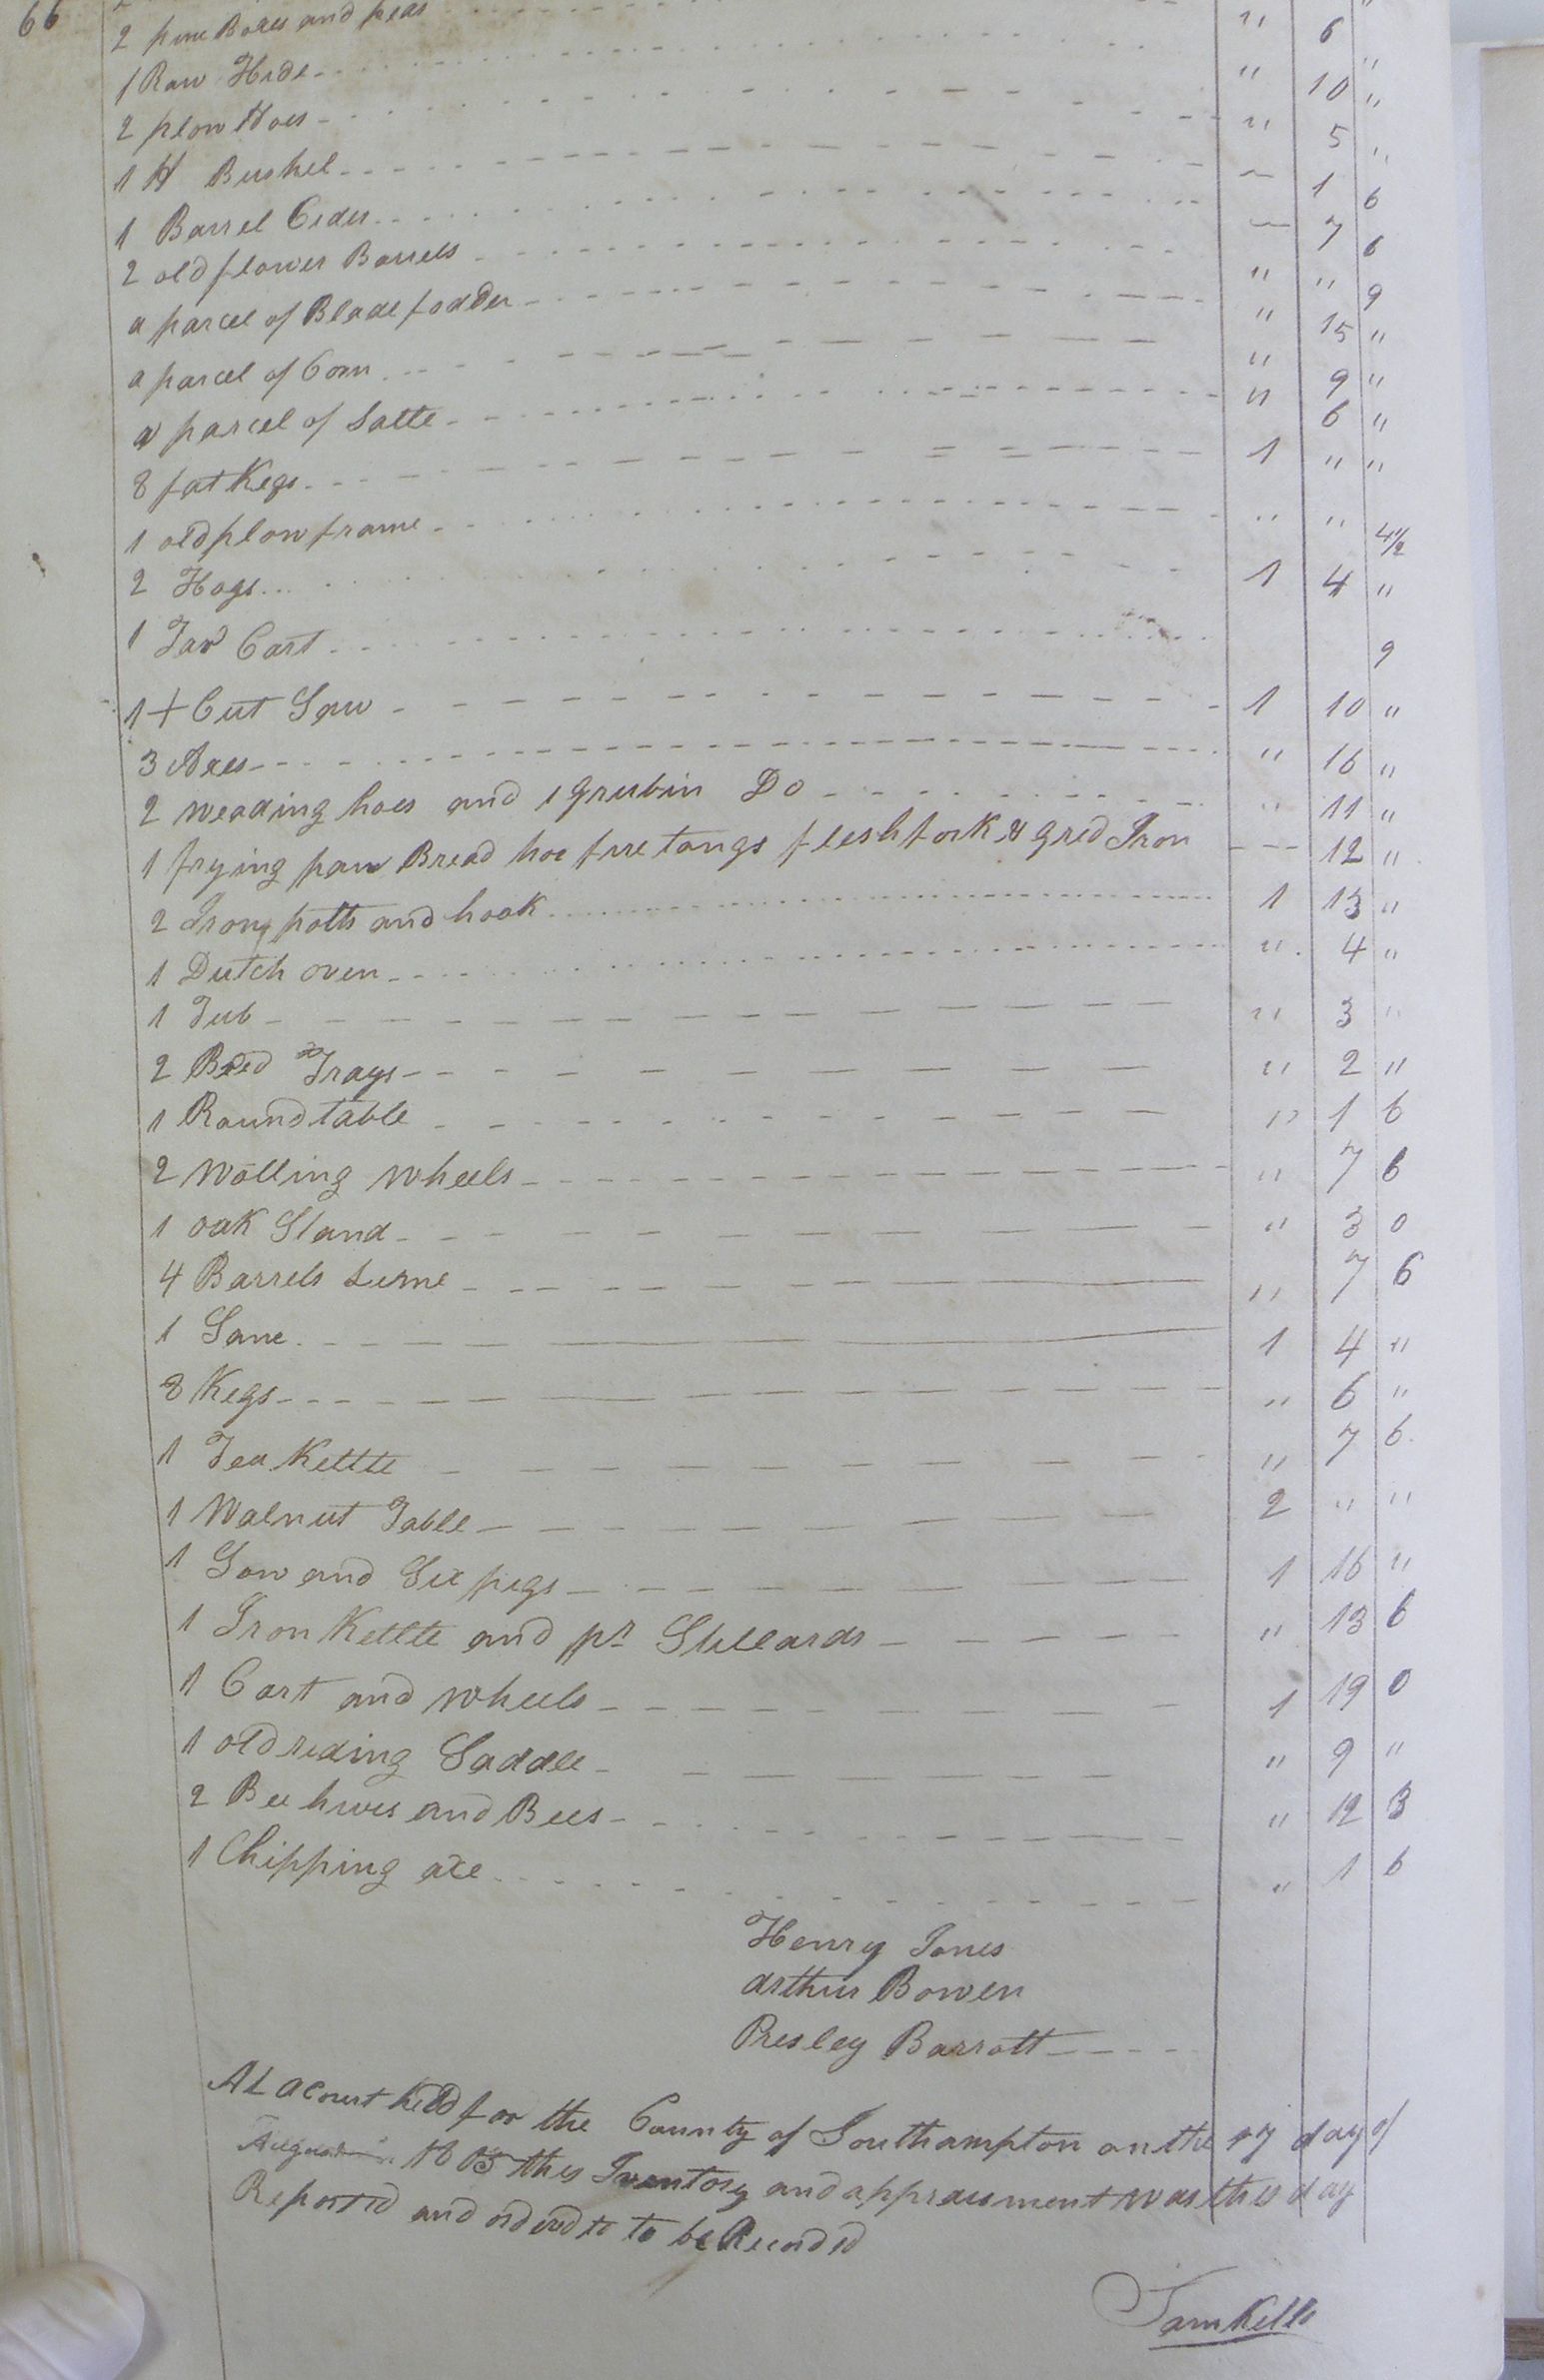 66
2 pine Boxes and peas " 6 "
1 Raw Hide " 10 "
2 plow Hoes " 5 "
1 H Bushel — 1 6
1 Barrel Cider — 7 6
2 old flower Barrels " " 9
a parcel of Blade fodder " 15 "
a parcel of Corn " 9 "
a parcel of Salte " 6 "
8 fat Kegs 1 " "
1 old plow frame " " 4 1/2
2 Hogs 1 4 "
1 Tar Cart 9
1 + Cut Saw 1 10 "
3 Axes " 16 "
2 weading hoes and 1 Grubin Do " 11 "
1 frying pan Bread hoe fire tongs flesh fork & Grid Iron --- 12 "
2 Irong potts and hook 1 13 "
1 Dutch oven " 4 "
1 Tub " 3 "
2 Bred Trays " 2 "
1 Round table " 1 6
2 Wolling Wheels " 7 6
1 oak Stand " 3 0
4 Barrels Lime " 7 6
1 Sane 1 4 "
8 Kegs " 6 "
1 Tea Kettle " 7 6
1 Walnut Table 2 " "
1 Sow and Six pigs 1 16 "
1 Iron Kettle and pr Stillards " 13 6
1 Cart and wheels 1 19 0
1 old riding Saddle " 9 "
2 Bee hives and Bees " 12 3
1 Chipping axe " 1 6
Henry Jones
Arthur Bowen
Presley Barrott
At a Court held for the County of Southampton on the day of
August 1805 this Inventory and appraisment was this day
Reported and ordered to be Recorded
Sam Kello